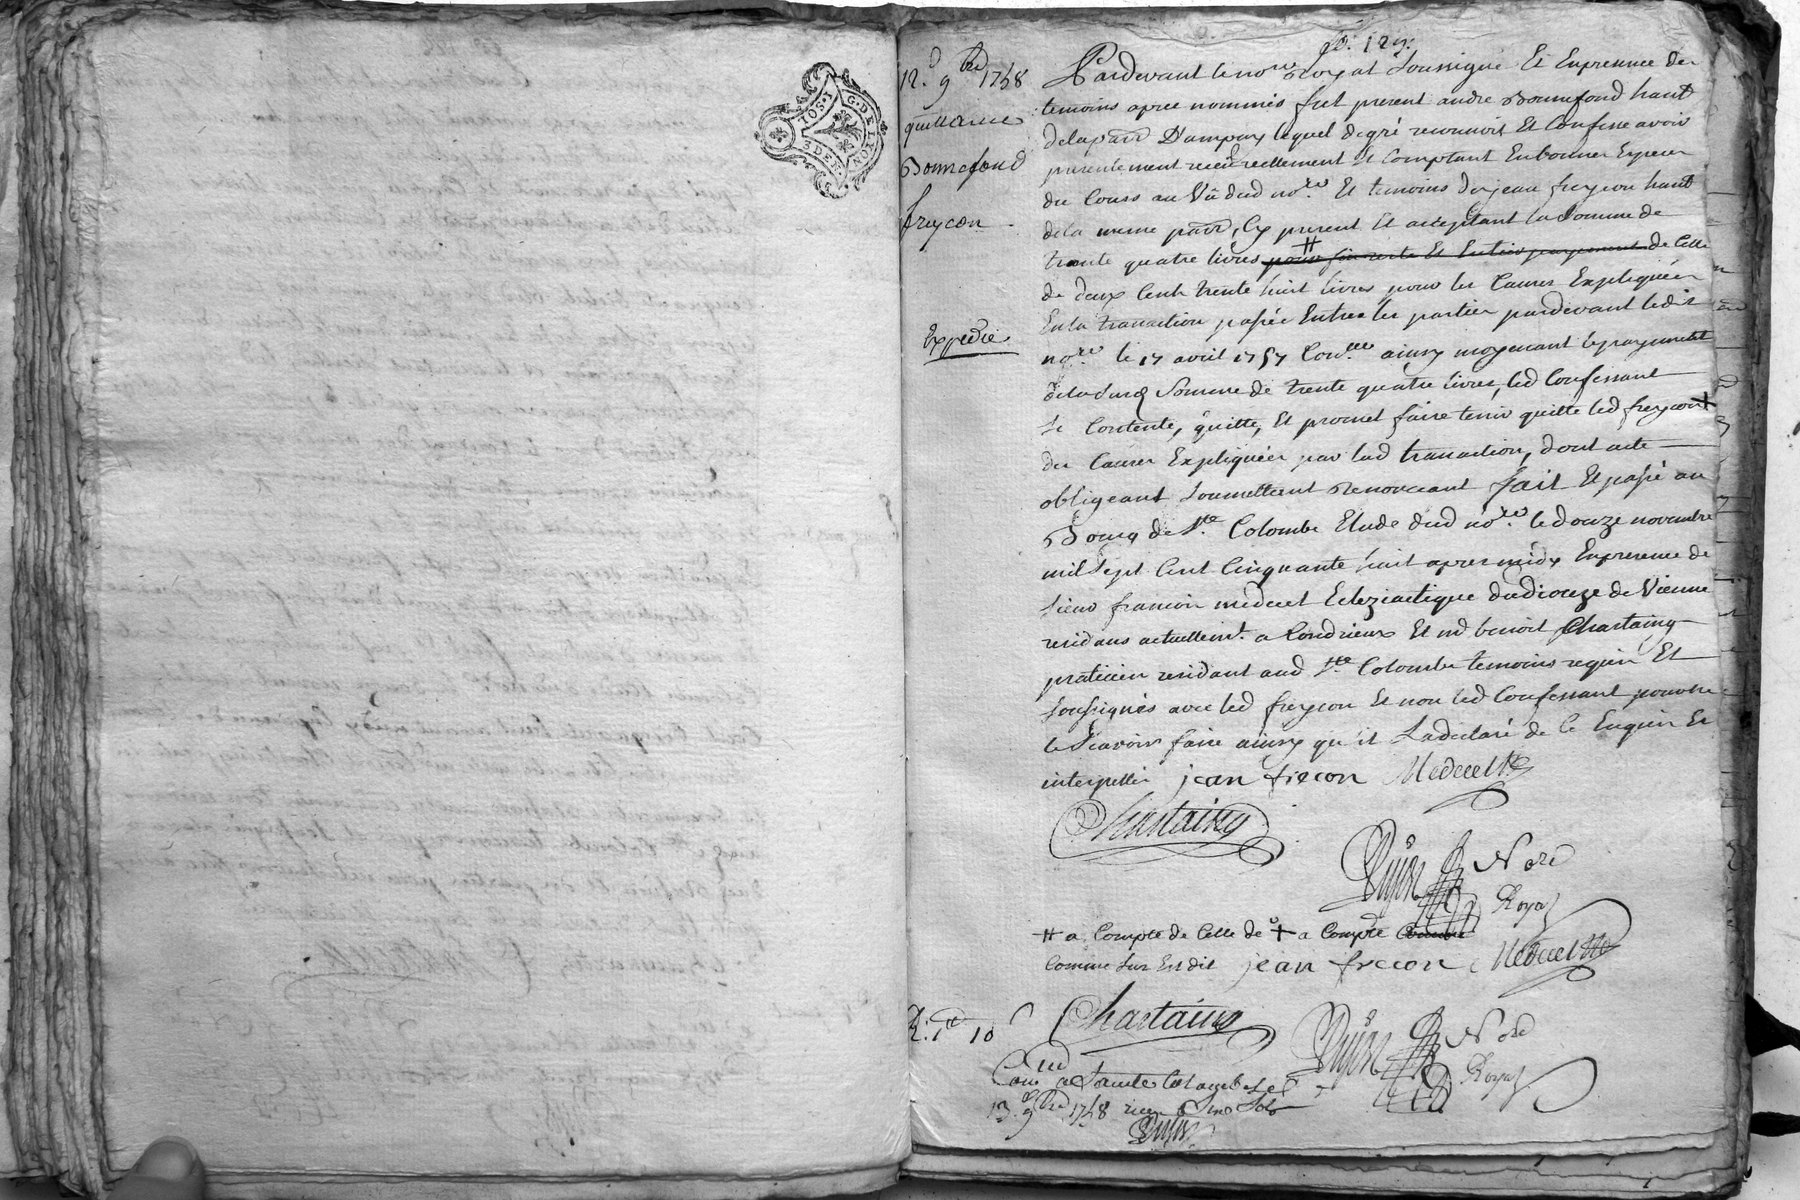 G. DE LYON
3 DEN.
fo. 129.
12.e 9bre 1758
quittance
Bonnefond
freycon
Expedié
Pardevant le nore Royal soussigné Et En presence des
temoins apres nommés fut present andre Bonnefond hant
de la parr D'ampuy lequel de gré reconnoit Et Confesse avoir
presentement receu reellement Et Comptant En bonnes Especes
du Cours au Vû dud nore. Et temoins de jean freycon hant
de la meme parr, Cy present Et acceptant la Somme de
trante quatre livres # pour fin reste Et Entier payement de Celle
de deux Cent trente huit livres pour les Causes Expliquées
En la transaction passée Entre les parties pardevant ledit
nore le 17 avril 1757 Conllée ainsy moyenant le payement
de la susd Somme de trente quatre livres, led Confessant
se Contente, quitte, Et promet faire tenir quitte led freycon +
des Causes Expliquées par lad transaction, dont acte
obligeant soumettant Renonceant fait Et passé au
Bourg de Ste Colombe Etude dud nore. le douze novembre
mil sept Cent Cinquante huit apres midy En presence de
sieur francois meduel Eclesiastique du dioceze de Vienne
residans actuellemt. a Condrieux Et md benoit Chartaing
praticien residant aud Ste Colombe temoins requis Et
soussignés avec led freycon Et non led Confessant pour ne
le Scavoir faire ainsy qu'il La declaré de Ce Enquis Et
interpellé jean frecon
Chartaing
Dujon Nore
Royal
# a Compte de Celle de + a Compte
Comme sus Est dit jean frecon
Chartaing
Dujon Nore
Royal
R: 10
13.e 9bre 1758
Dujon